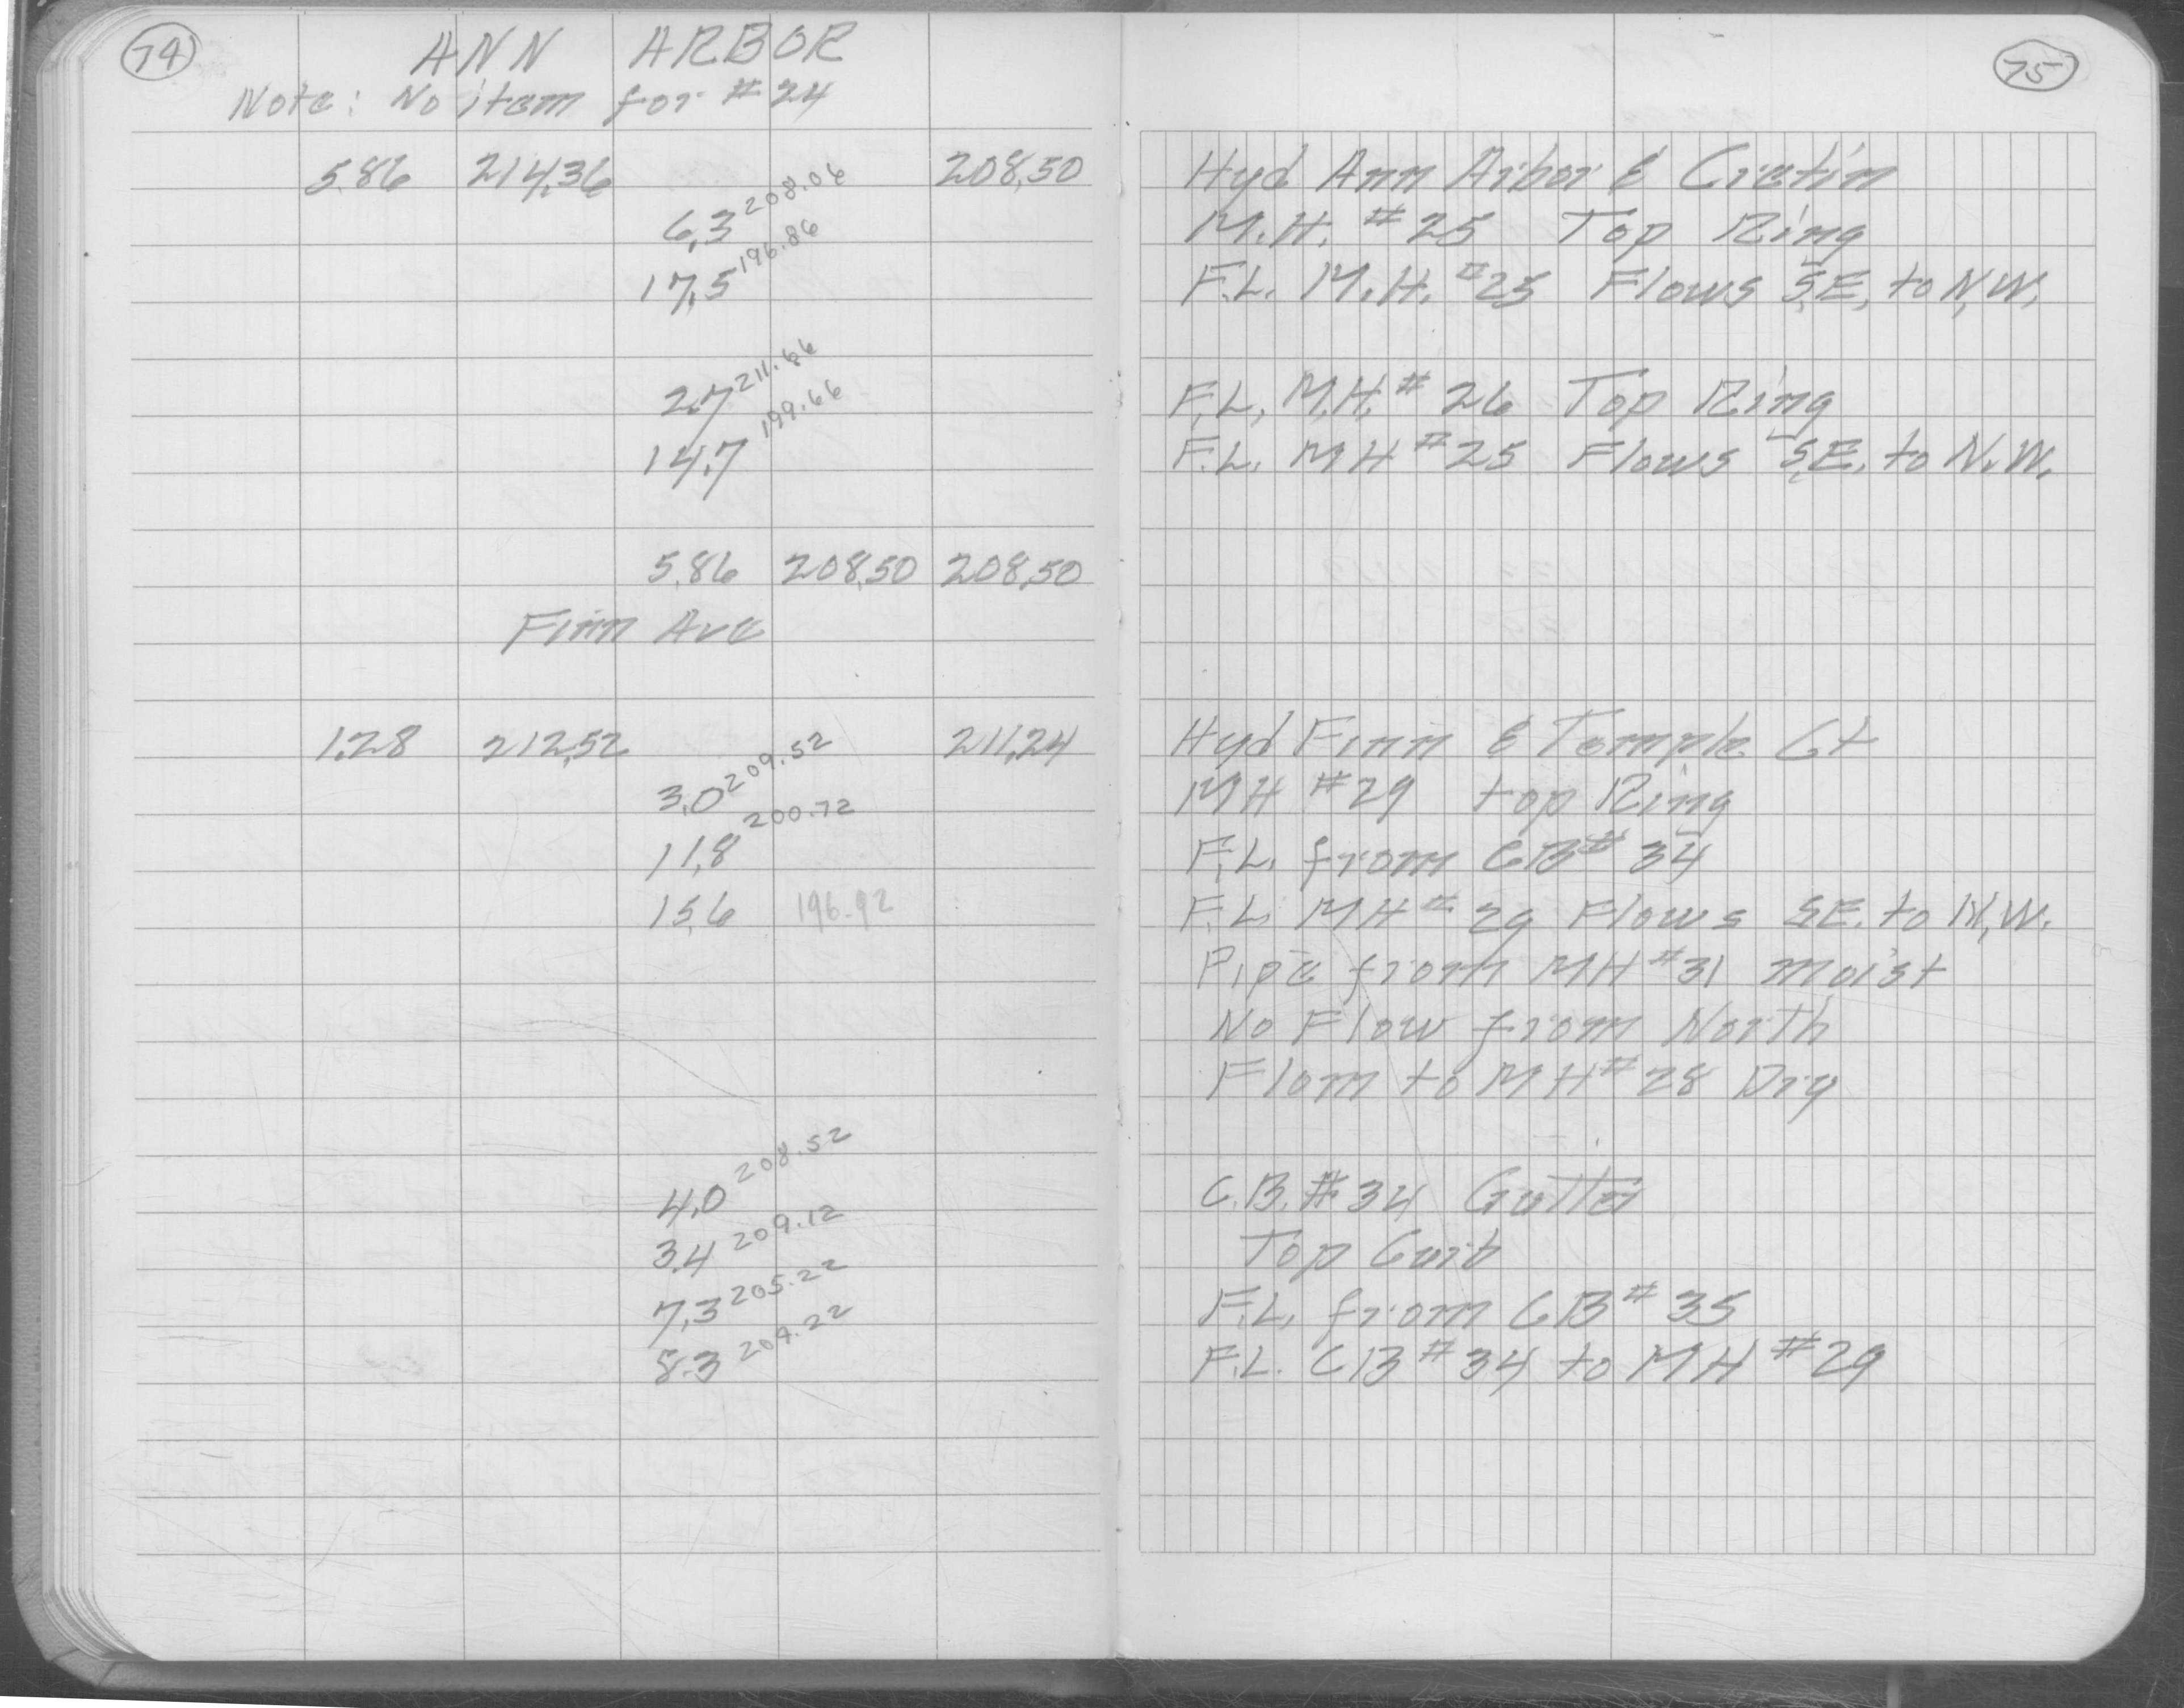 74
ANN ARBOR
Note: No item for #24
5.86 214.36 208.50
6.3 208.06
17.5 196.86
2.7 211.66
14.7 199.66
5.86 208.50 208.50
Finn Ave
1.28 212.52 211.24
3.0 209.52
11.8 200.72
15.6 196.92
4.0 208.52
3.4 209.12
7.3 205.22
8.3 204.22
75
Hyd Ann Arbor & Cretin
M.H. #25 Top Ring
F.L. M.H. #25 Flows S.E. to N.W.
F.L. M.H. #26 Top Ring
F.L. MH #25 Flows S.E. to N.W.
Hyd Finn & Temple Ct
MH #29 top Ring
F.L. from CB# 34
F.L. MH # 29 Flows S.E. to N.W.
Pipe from MH #31 moist
No Flow from North
Flom to MH# 28 Dry
C.B. #34 Gutter
Top Curb
F.L. from CB# 35
F.L. CB #34 to MH #29